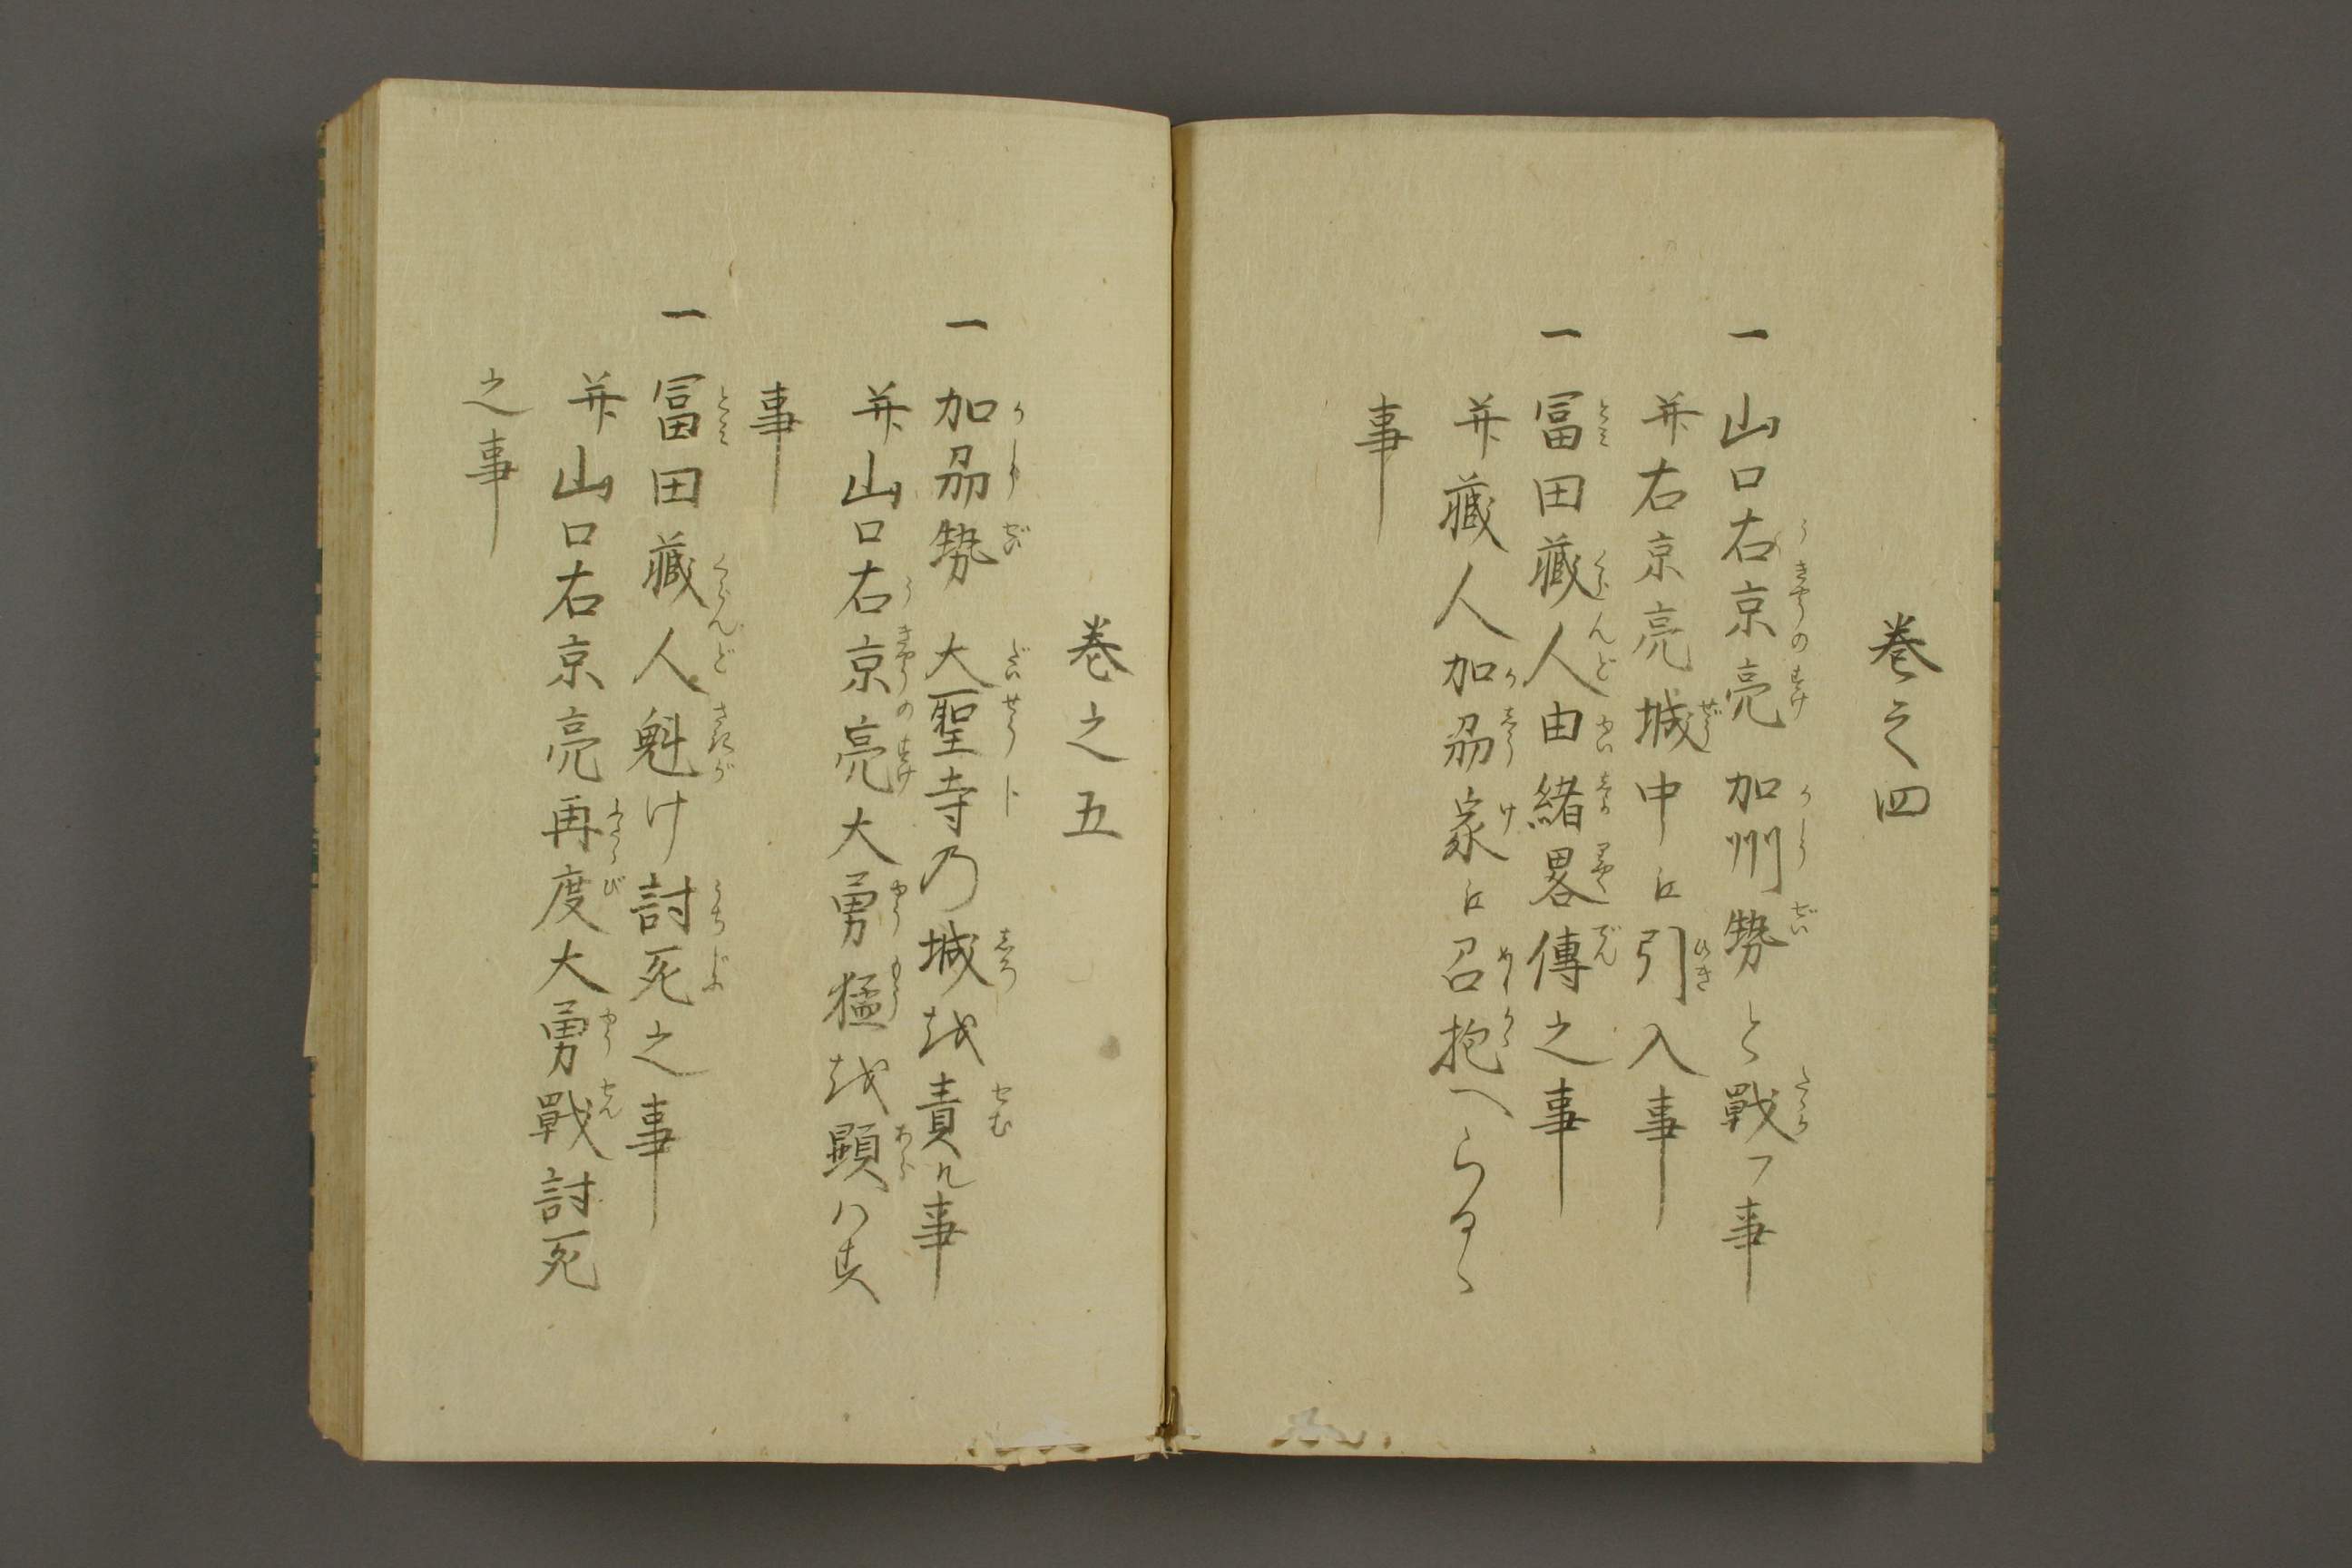 巻之四
一 山口右京亮加州勢と戦フ事
并右京亮城中江引入事
一 冨田蔵人由緒畧傳之事
并蔵人加刕家江召抱へらるゝ
事
巻之五
一 加刕勢大聖寺乃城越責ル事
并山口右京亮大勇猛越顕ハす
事
一 冨田蔵人魁け討死之事
并山口右京亮再度大勇戦討死
之事